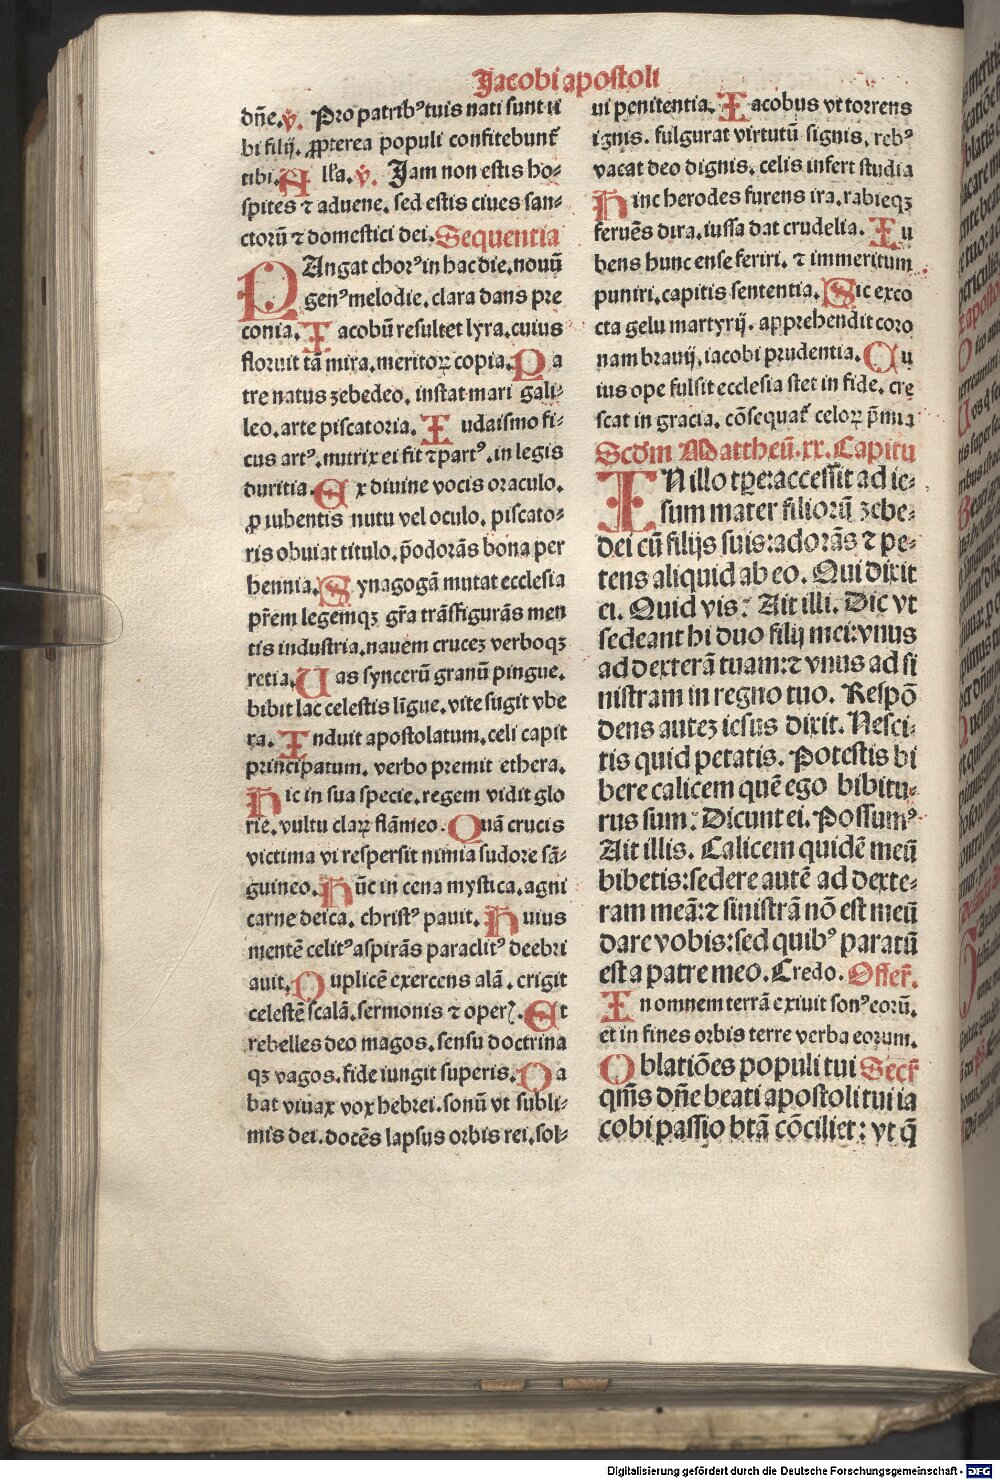 Jacobi apostoli
dñe. ꝟ. Pro patribꝰ tuis nati sunt ti
bi filij. ꝓpterea populi confitebunt᷑
tibi. Alła. ꝟ. Jam non estis ho-
spites ⁊ aduene. sed estis ciues san-
ctorũ ⁊ domestici dei. Sequentia
PAngat chorꝰ in hac die. nouũ
genꝰ melodie. clara dans pre
conia. Iacobũ resultet lyra. cuius
floruit tã mira. meritoꝝ copia. Pa
tre natus zebedeo. instat mari gali-
leo. arte piscatoria. Iudaismo fi-
cus artꝰ. nutrix ei fit ⁊ partꝰ. in legis
duritia. Ex diuine vocis oraculo.
ꝓ iubentis nutu vel oculo. piscato-
ris obuiat titulo. p̃odorãs bona per
hennia. Synagogã mutat ecclesia
pr̃em legemqꝫ gr̃a trãsfigurãs men
tis industria. nauem crucez verboqꝫ
retia. Uas syncerũ granũ pingue.
bibit lac celestis lĩgue. vite sugit vbe
ra. Induit apostolatum. celi capit
principatum. verbo premit ethera.
Hic in sua specie. regem vidit glo
rie. vultu claꝝ flãmeo. Quã crucis
victima vi respersit nimia sudore sã-
guineo. Hũc in cena mystica. agni
carne deica. christꝰ pauit. Huius
mentẽ celitꝰ aspirãs paraclitꝰ deebri
auit. Duplicẽ exercens alã. erigit
celestẽ scalã. sermonis ⁊ oper᷑. Et
rebelles deo magos. sensu doctrina
qꝫ vagos. fide iungit superis. Da
bat viuax vox hebrei. sonũ vt subli-
mis dei. docẽs lapsus orbis rei. sol-
ui penitentia. Iacobus vt torrens
ignis. fulgurat virtutũ signis. rebꝰ
vacat deo dignis. celis infert studia
Hinc herodes furens ira. rabieqꝫ
feruẽs dira. iussa dat crudelia. Iu
bens hunc ense feriri. ⁊ immeritum
puniri. capitis sententia. Sic exco
cta gelu martyrij. apprehendit coro
nam brauij. iacobi prudentia. Cu
ius ope fulsit ecclesia stet in fide. cre
scat in gracia. cõsequat᷑ celoꝝ p̃mia
Scďm Mattheũ. xx. Capitu
IN illo tp̃e: accessit ad ie-
sum mater filiorũ zebe-
dei cũ filijs suis: adorãs ⁊ pe-
tens aliquid ab eo. Qui dixit
ei. Quid vis? Ait illi. Dic vt
sedeant hi duo filij mei: vnus
ad dexterã tuam: ⁊ vnus ad si
nistram in regno tuo. Respõ
dens autez iesus dixit. Nesci-
tis quid petatis. Potestis bi
bere calicem quẽ ego bibitu-
rus sum? Dicunt ei. Possumꝰ
Ait illis. Calicem quidẽ meũ
bibetis: sedere autẽ ad dexte-
ram meã: ⁊ sinistrã nõ est meũ
dare vobis: sed quibꝰ paratũ
est a patre meo. Credo. Offer̃.
In omnem terrã exiuit sonꝰ eorũ.
et in fines orbis terre verba eorum.
Oblatiões populi tui Secr̃
qm̃s dñe beati apostoli tui ia
cobi passio btã cõciliet: vt q̃
Digitalisierung gefördert durch die Deutsche Forschungsgemeinschaft - DFG